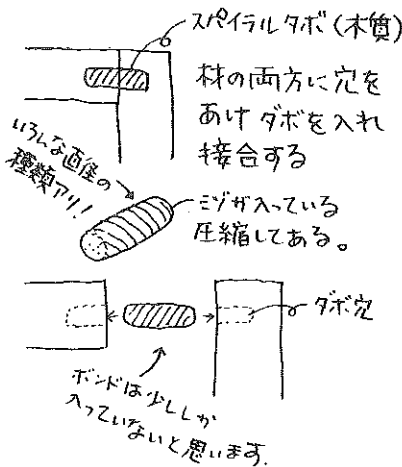 スパイラルダボ(木質)
材の両方に穴を
あけ ダボを入れ
接合する
いろんな直径の
種類アリ!
ミゾが入っている
圧縮してある。
ダボ穴
ボンドは少ししか
入っていないと思います.